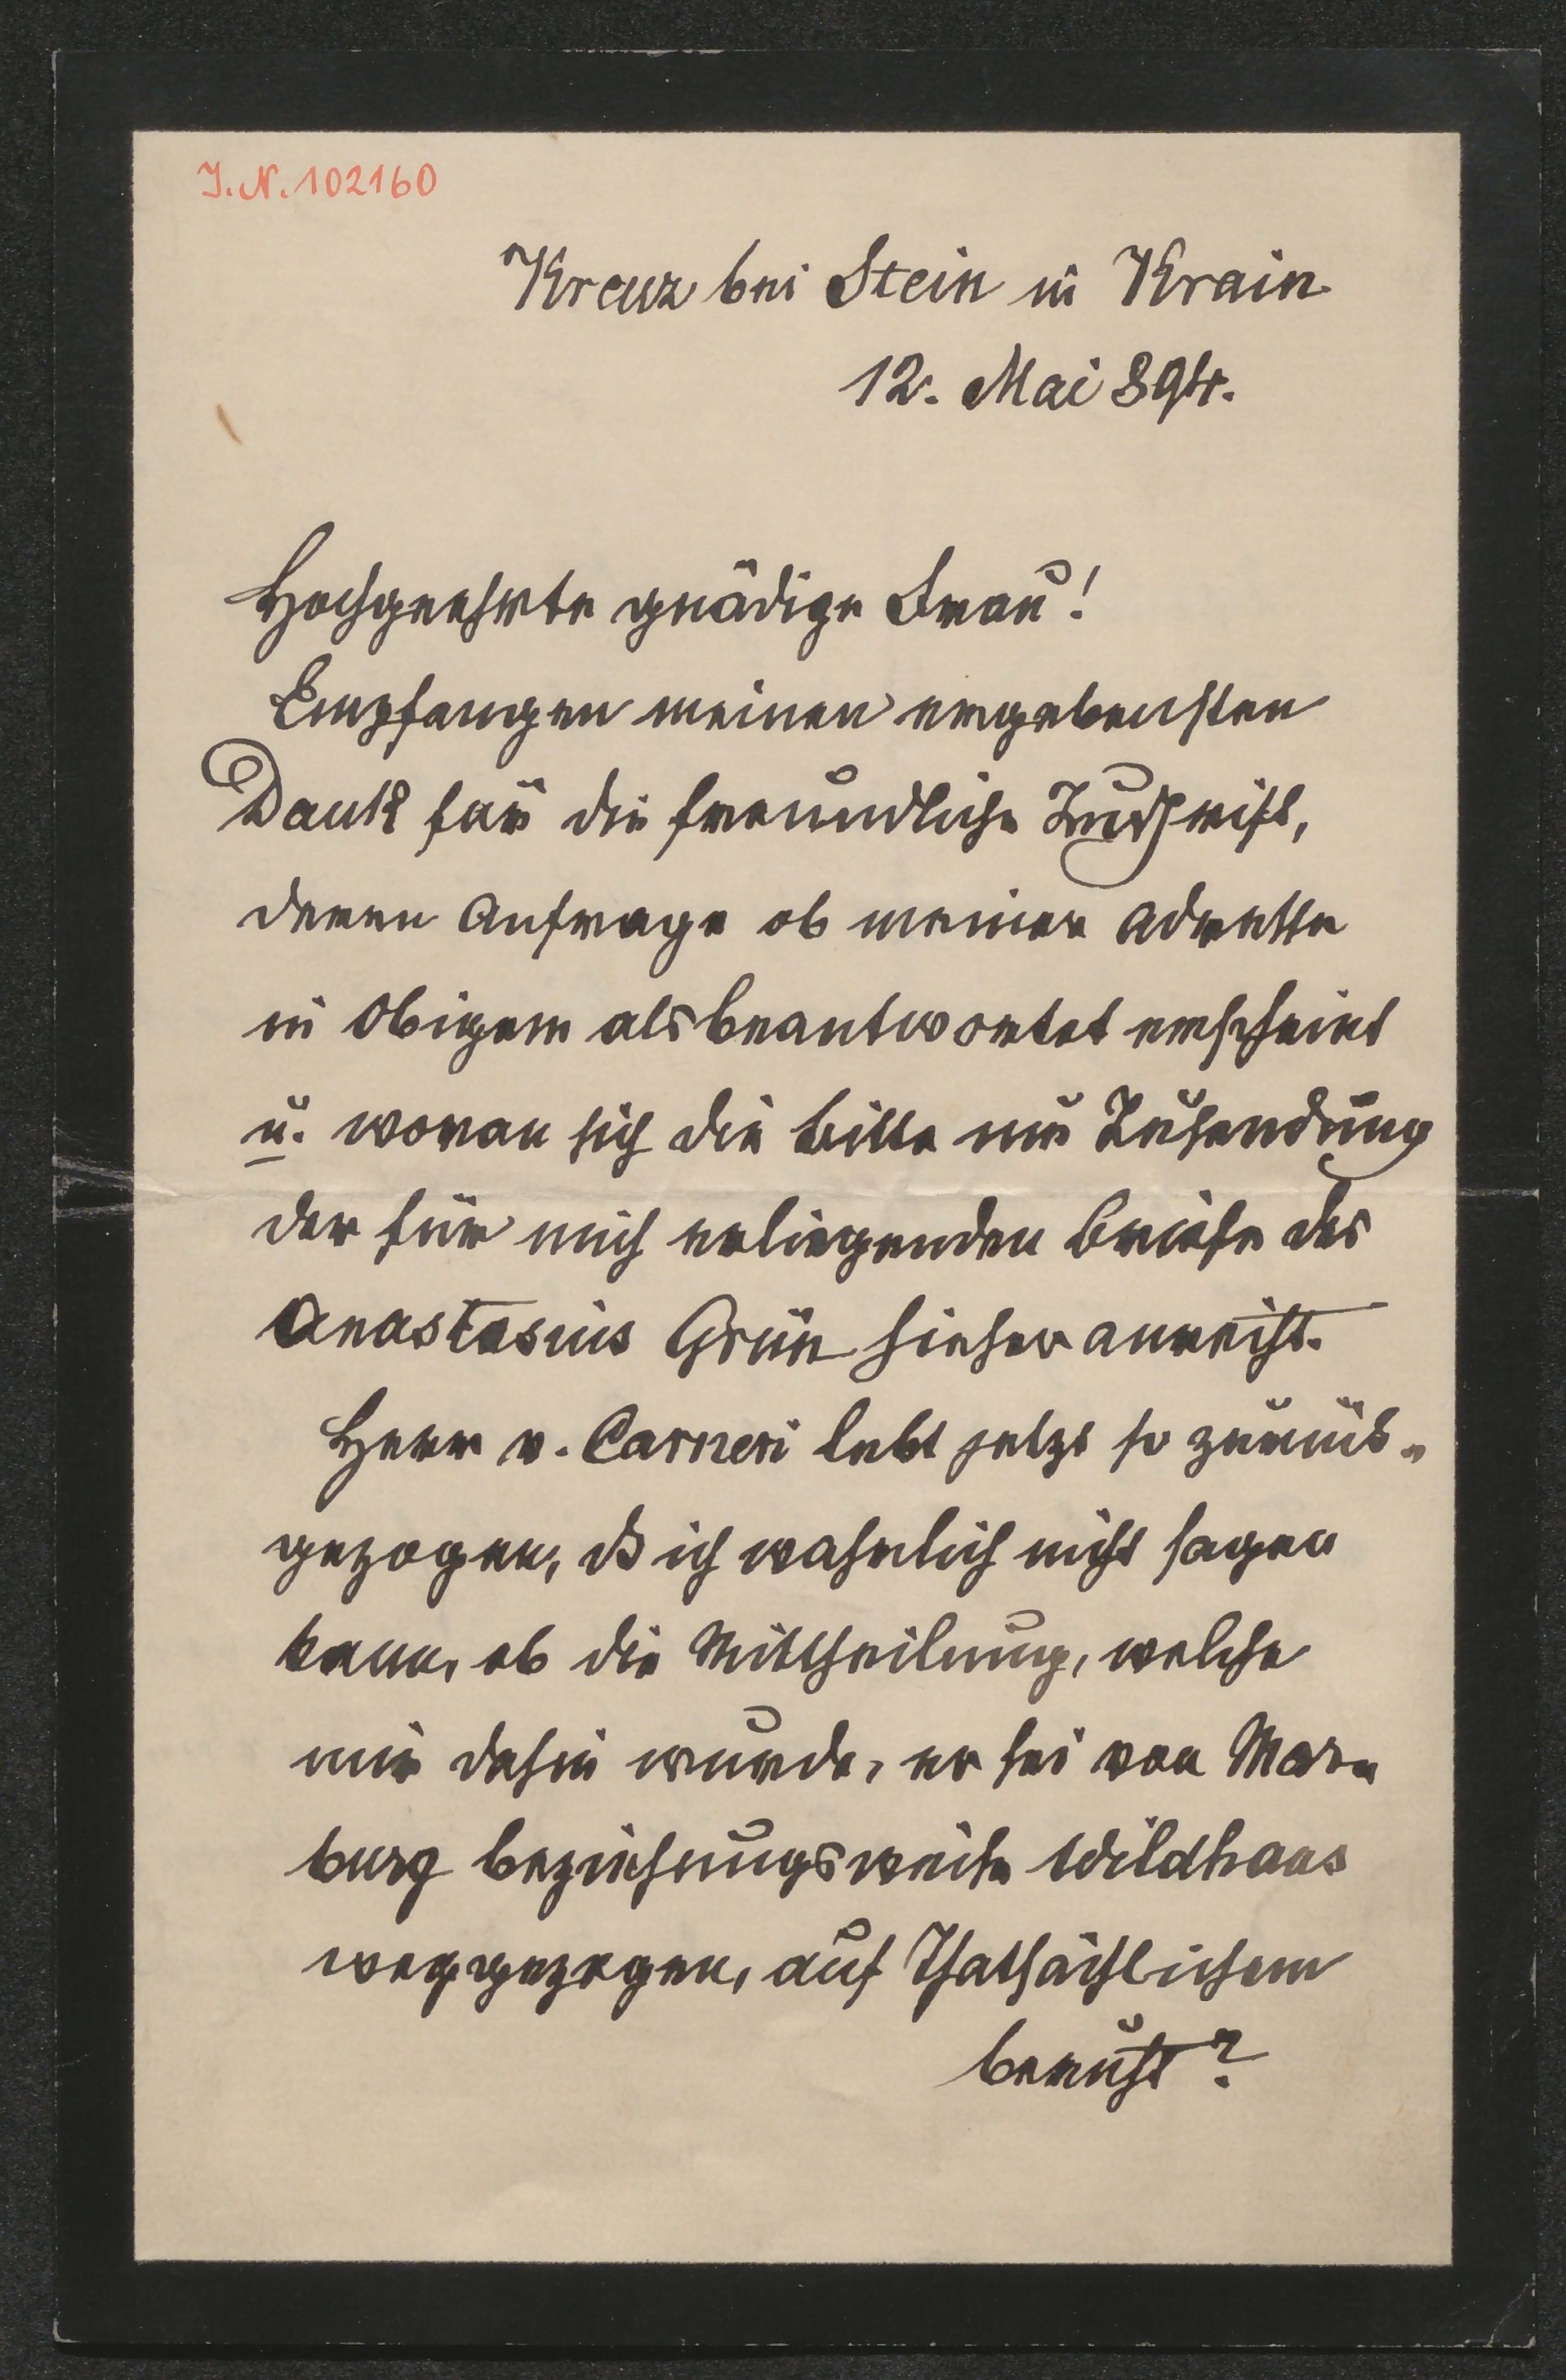 J.N. 102160
Kreuz bei Stein in Krain
12. Mai 894.
Hochgeehrte gnädige Frau!
Empfangen meinen ergebensten
Dank für die freundliche Zuschrift,
deren Anfrage ob meiner Adresse
in Obigem als beantwortet erscheint
u. woran sich die Bitte um Zusendung
der für mich erliegenden Briefe des
Anastasius Grün hieher anreiht.
Herr v. Carneri lebt jetzt so zurück-
gezogen, dß ich wahrlich nicht sagen
kann, ob die Mittheilung, welche
mir dahin wurde, er sei von Mar-
burg beziehungsweise Wildhaus
weggezogen, auf Thatsächlichem
beruht?